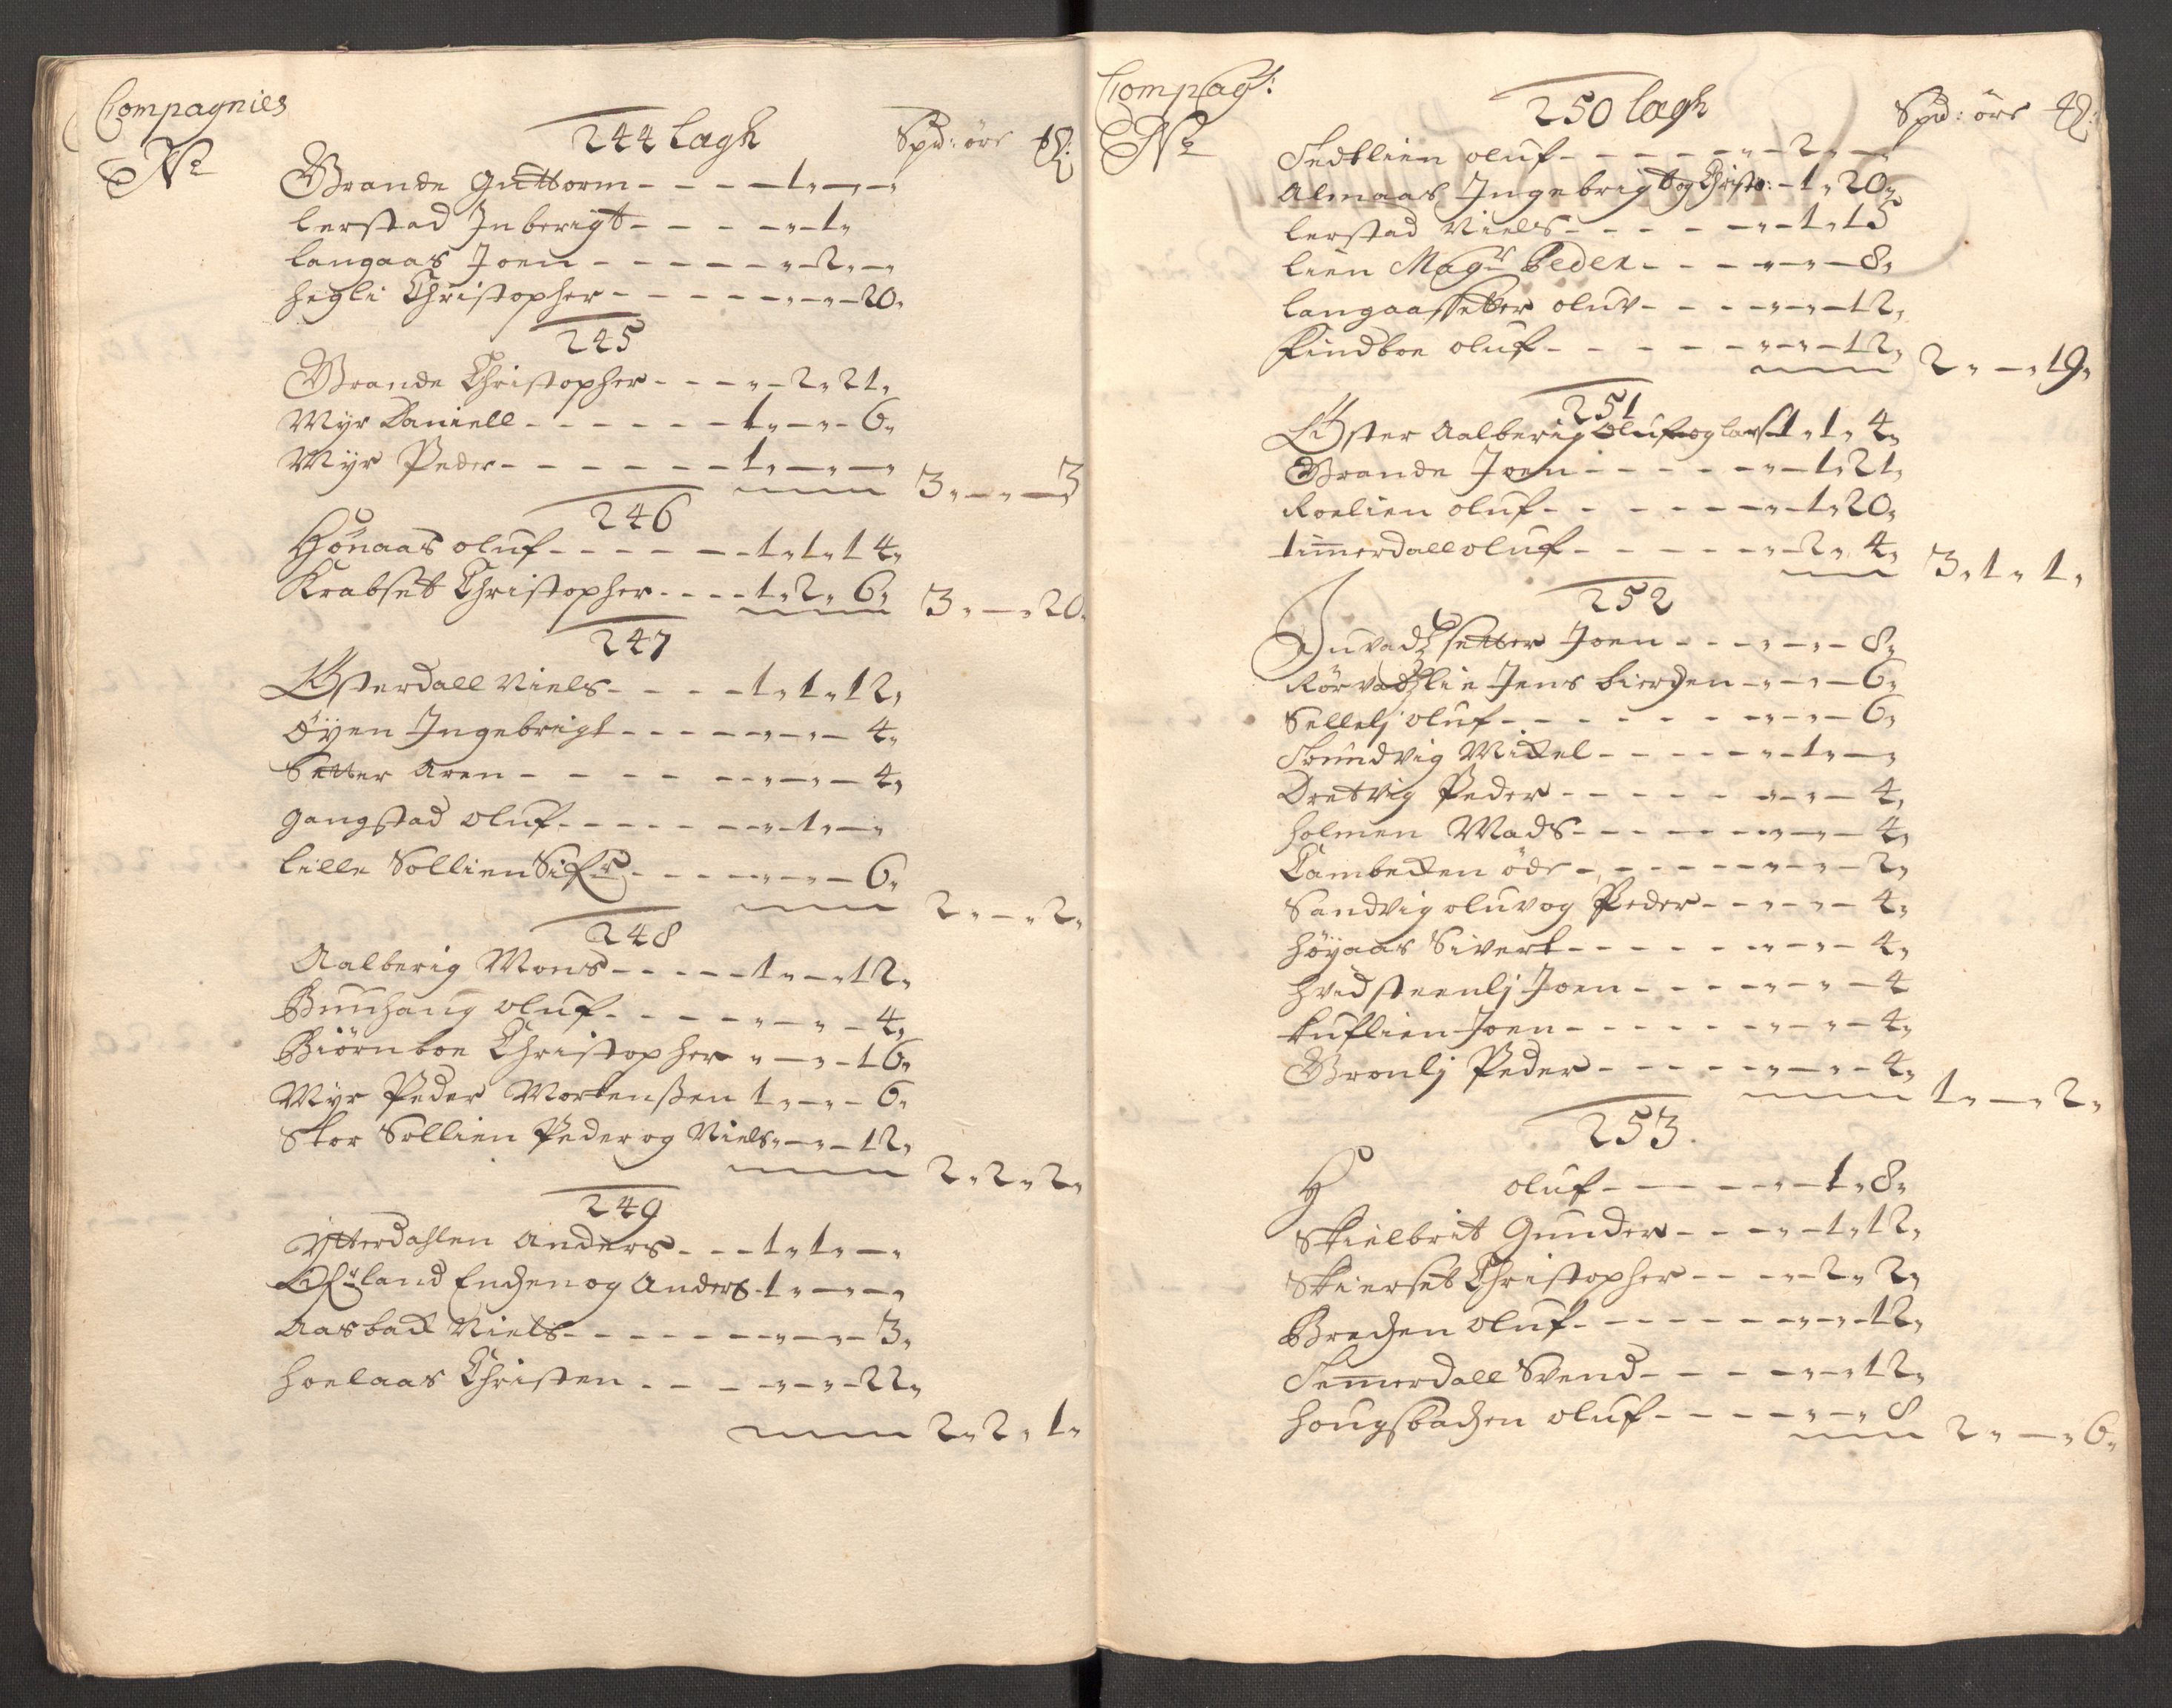 Compagnies
No
244 Lagh Spd: öre
Grande Guttorm - - - - 1 " — " — "
Lerstad Inberigt - - - - " - 1 "
Langaas Joen - - - - - - " - 2 " — "
Hegli Christopher - - - - - - " - " - 20 "
245
Grande Christopher - - - " - 2 " 21 "
Myr Daniell - - - - - - 1 " — " - 6 "
Myr Peder - - - - - - - 1 " — " — "
3 " — " — 3
246
Hönaas Oluf - - - - - - 1 " 1 " 14 "
Krabset Christopher - - - - 1 " 2 " 6 "
3 " — " 20 "
247
Østerdall Niels - - - - 1 " 1 " 12 "
Öyen Ingebrigt - - - - - " - " - 4 "
Setter Aren - - - - - - " - " - 4 "
Gangstad Oluf - - - - - - " - 1 " — "
Lille Sollien - - - - " - " - 6 "
2 " — " 2 "
248
Aalberig Mons - - - - - 1 " — " 12 "
Buuhaug Oluf - - - - - " — " - 4 "
Biörnboe Christopher " — " - 16 "
Myr Peder Mortenßen 1 " — " - 6 "
Stor Sollien Peder og Niels " — " - 12 "
2 " 2 " 2 "
249
Ytterdahlen Anders - - - 1 " 1 " — "
Enchen og Anders - 1 " — " — "
Aasback Niels - - - - - - - " — " - 3 "
Hoelaas Christen - - - - " - " - 22 "
2 " 2 " 1 "
Compag:
No
250 Lagh Spd: öre
Sedtlien Oluf - - - - - - " - 2 " — "
Almaas Ingebrigt og Christo: - 1 " 20 "
Lerstad Niels - - - - - " - 1 " 15
Lien Magr Peder - - - " - " - 8 "
Langaassetter Oluv - - - - " - " - 12 "
Findboe Oluf - - - - - - " - " - 12 "
2 " — " 19 "
251
Øster Aalberig Oluf og Lars 1 " 1 " 4 "
Grande Joen - - - - - - " - 1 " 21 "
Roelien Oluf - - - - - - " - 1 " 20 "
Timerdall Oluf - - - - - " - 2 " 4 "
3 " 1 " 1 "
252
setter Joen - - - " - " - 8 "
Jens Bierchen - " - " - 6 "
Sellelj Oluf - - - - - - - " - " - 6 "
Mickel - - - - - " - 1 " — "
Dretvig Peder - - - - - " - " - 4 "
Holmen Mads - - - - - " - " - 4 "
Cambecken öde - - - - - " - " - 2 "
Sandvig Oluv og Peder - - " - " - 4 "
Höyaas Sivert - - - - - " - " - 4 "
Hvidsteenlj Joen - - - - " - " - 4
Tuflien Joen - - - - - - " - " - 4 "
Gronlj Peder - - - - - " - " - 4 "
1 " — " 2 "
253.
H Oluf - - - - - " - 1 " 8 "
Skielbrit Gunder - - - " - 1 " 12 "
Skierset Christopher - - " - 2 " 2 "
Brechen Oluf - - - - - - " - " - 12 "
Semerdall Svend - - - - " - " 12 "
Hougsbachen Oluf - - - - " - " 8
2 " — " 6 "